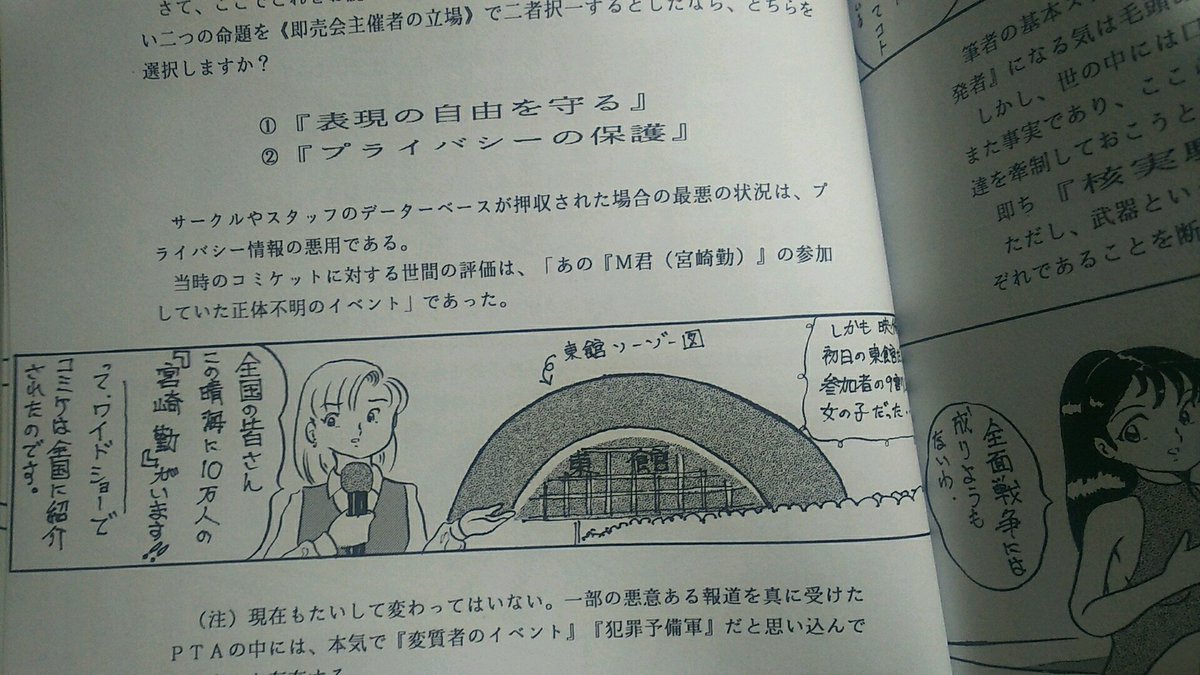 さて、ここでこれ
い二つの命題を《即売会主催者の立場》で二者択一するとしたなら、どちらを
選択しますか?
①『表現の自由を守る』
②『プライバシーの保護』
サークルやスタッフのデーターベースが押収された場合の最悪の状況は、プ
ライバシー情報の悪用である。
当時のコミケットに対する世間の評価は、「あの『M君(宮崎勤)』の参加
していた正体不明のイベント」であった。
しかも映
初日の東館
参加者の9割
女の子だった
東館ソーゾー図
東館
全国の皆さん
この晴海に10万人の
『宮崎勤』がいます!!
って、ワイドショーで
コミケは全国に紹介
されたのです。
(注)現在もたいして変わってはいない。一部の悪意ある報道を真に受けた
PTAの中には、本気で『変質者のイベント』『犯罪予備軍』だと思い込んで
てコト
筆者の基本ス
発者』になる気は毛頭
しかし、世の中には
また事実であり、ここ
達を牽制しておこうと
即ち『核実
ただし、武器とい
ぞれであることを断
全面戦争には
成りようも
ないわ.